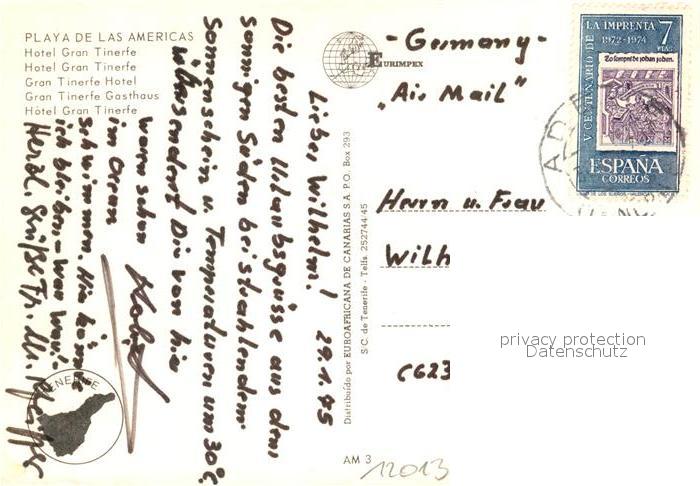 PLAYA DE LAS AMERICAS
Hotel Gran Tinerfe
Hotel Gran Tinerfe
Gran Tinerfe Hotel
Gran Tinerfe Gasthaus
Hôtel Gran Tinerfe
Lieber Wilhelm! 29.1.75
Die besten Urlaubsgrüsse aus dem
sonnigen Süden bei strahlendem
Sonnenschein u. Temperaturen um 30°C.
übersendet Dir von hier
waren schon
im Ozean
schwimmen. Hier könnte
ich bleiben - war
Herzl. Grüße
TENERIFE
EURIMPEX
Distribuido por EUROAFRICANA DE CANARIAS S.A. P.O. Box 293
S/C. de Tenerife - Telfs. 252744/45
AM 3
12013
- Germany -
"Air Mail"
Herrn u. Frau
Wilh
C623
V CENTENARIO DE LA IMPRENTA
1972-1974
7
PTAS
ESPAÑA
CORREOS
privacy protection
Datenschutz